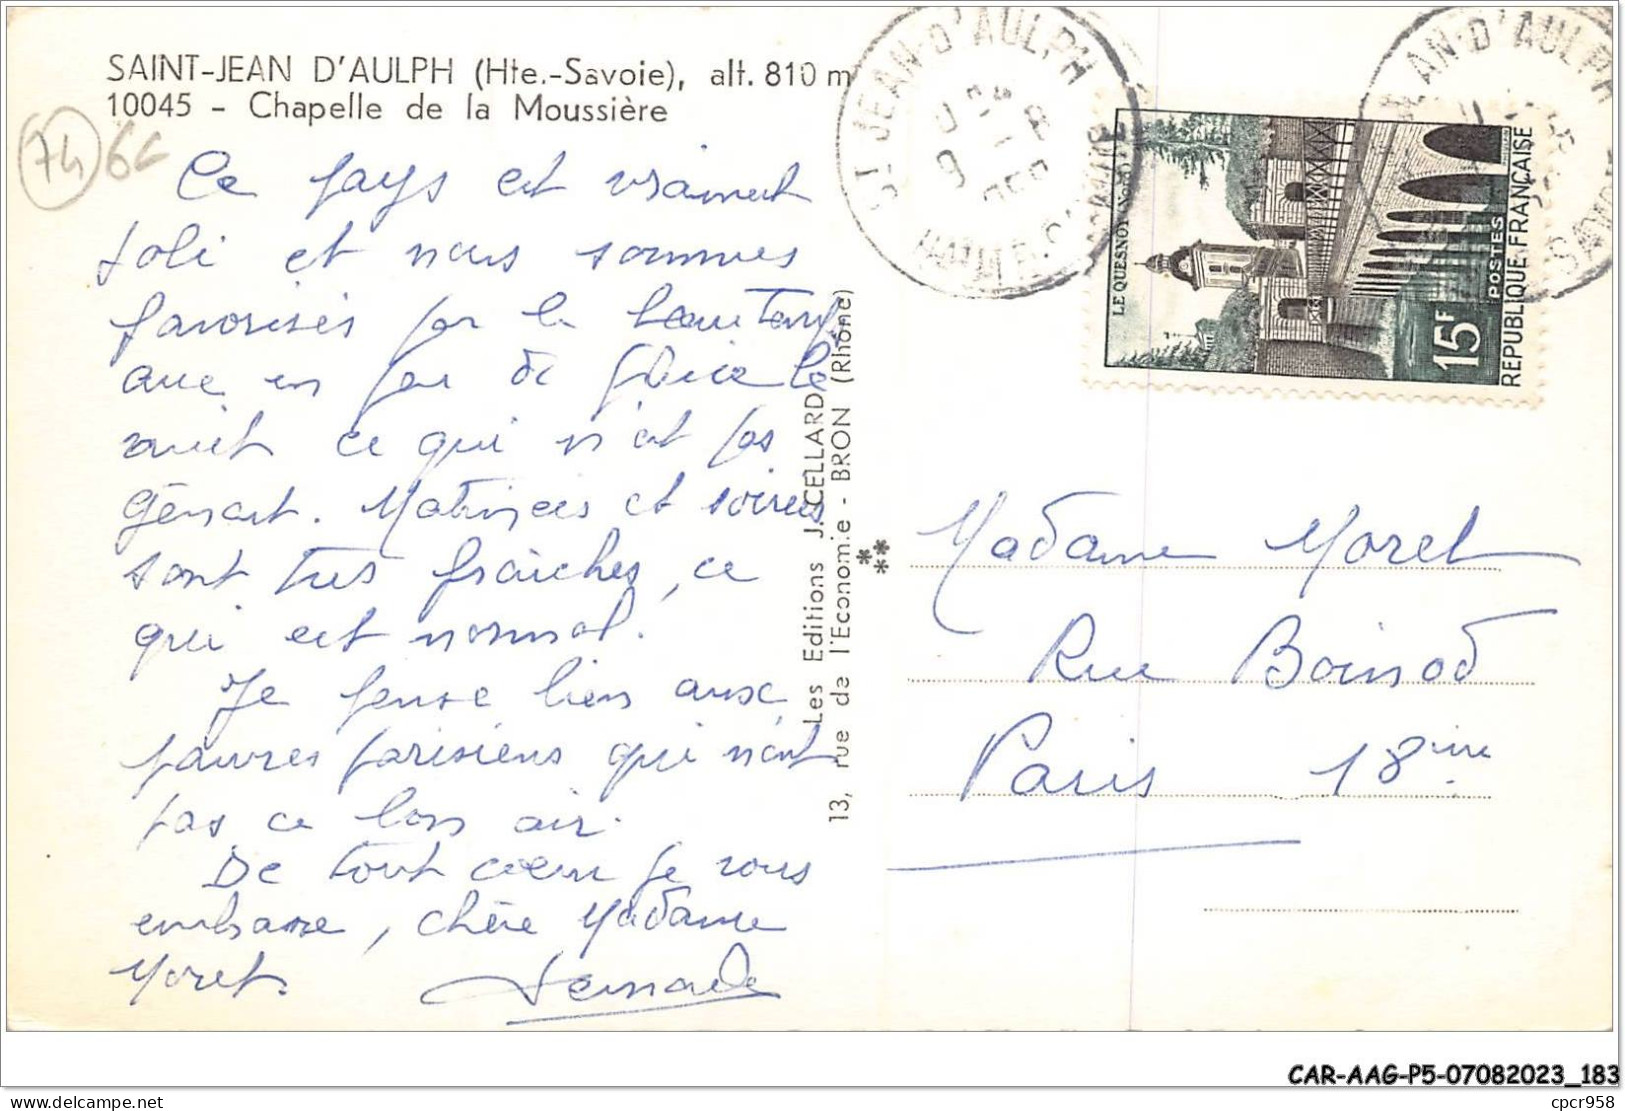 SAINT-JEAN D'AULPH (Hte.-Savoie), alt. 810 m
10045 - Chapelle de la Moussière
74
6€
Ce pays est vraiment
joli et nous sommes
favorisés par le beau temps
avec un peu de pluie la
nuit ce qui n'est pas
gênant. Matinées et soirées
sont très fraîches, ce
qui est normal.
Je pense bien aux
pauvres parisiens qui n'ont
pas ce bon air.
De tout coeur je vous
embrasse, chère Madame
Moret.
13, rue de l'Economie - BRON (Rhône)
Les Editions J. CELLARD
ST JEAN-D'AULPH
HAUTE-SAVOIE
JEAN-D'AULPH
SAVOIE
LE QUESNOY NORD
15F
POSTES
REPUBLIQUE FRANÇAISE
Madame Moret
Rue Boinod
Paris 18ème
CAR-AAG-P5-07082023_183
cpcr958